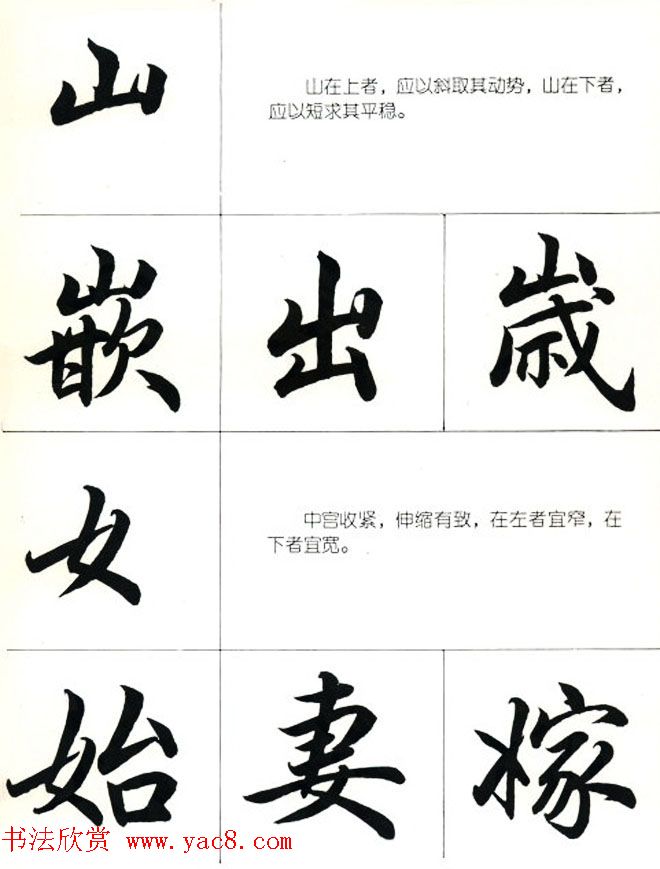 山
山在上者，应以斜取其动势，山在下者，
应以短求其平稳。
嵌 出 歳
女
中宫收紧，伸缩有致，在左者宜窄，在
下者宜宽。
始 妻 嫁
书法欣赏 www.yac8.com